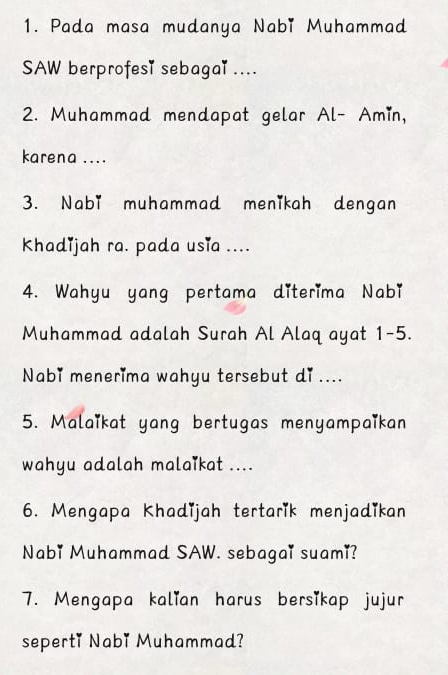 1. Pada masa mudanya Nabi Muhammad
SAW berprofesi sebagai ....
2. Muhammad mendapat gelar Al- Amin,
karena ....
3. Nabi muhammad menikah dengan
Khadijah ra. pada usia ....
4. Wahyu yang pertama diterima Nabi
Muhammad adalah Surah Al Alaq ayat 1-5.
Nabi menerima wahyu tersebut di ....
5. Malaikat yang bertugas menyampaikan
wahyu adalah malaikat ....
6. Mengapa Khadijah tertarik menjadikan
Nabi Muhammad SAW. sebagai suami?
7. Mengapa kalian harus bersikap jujur
seperti Nabi Muhammad?